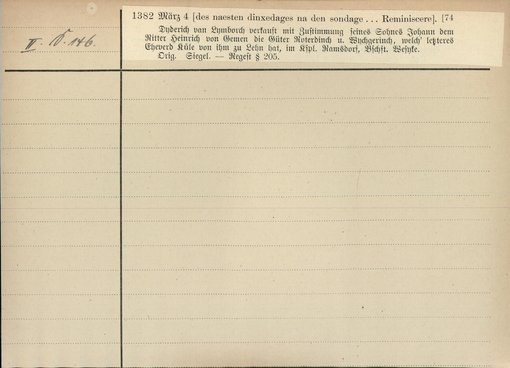 1382 März 4 [des naesten dinxedages na den sondage ... Reminiscere]. [74
Dyderich van Lymborch verkauft mit Zustimmung seines Sohnes Johann dem
Ritter Heinrich von Gemen die Güter Roterdinch u. Wychgerinch, welch' letzteres
Everd Küle von ihm zu Lehn hat, im Kspl. Ramsdorf, Bschft. Wesyke.
Orig. Siegel. — Regest § 205.
II. 146.